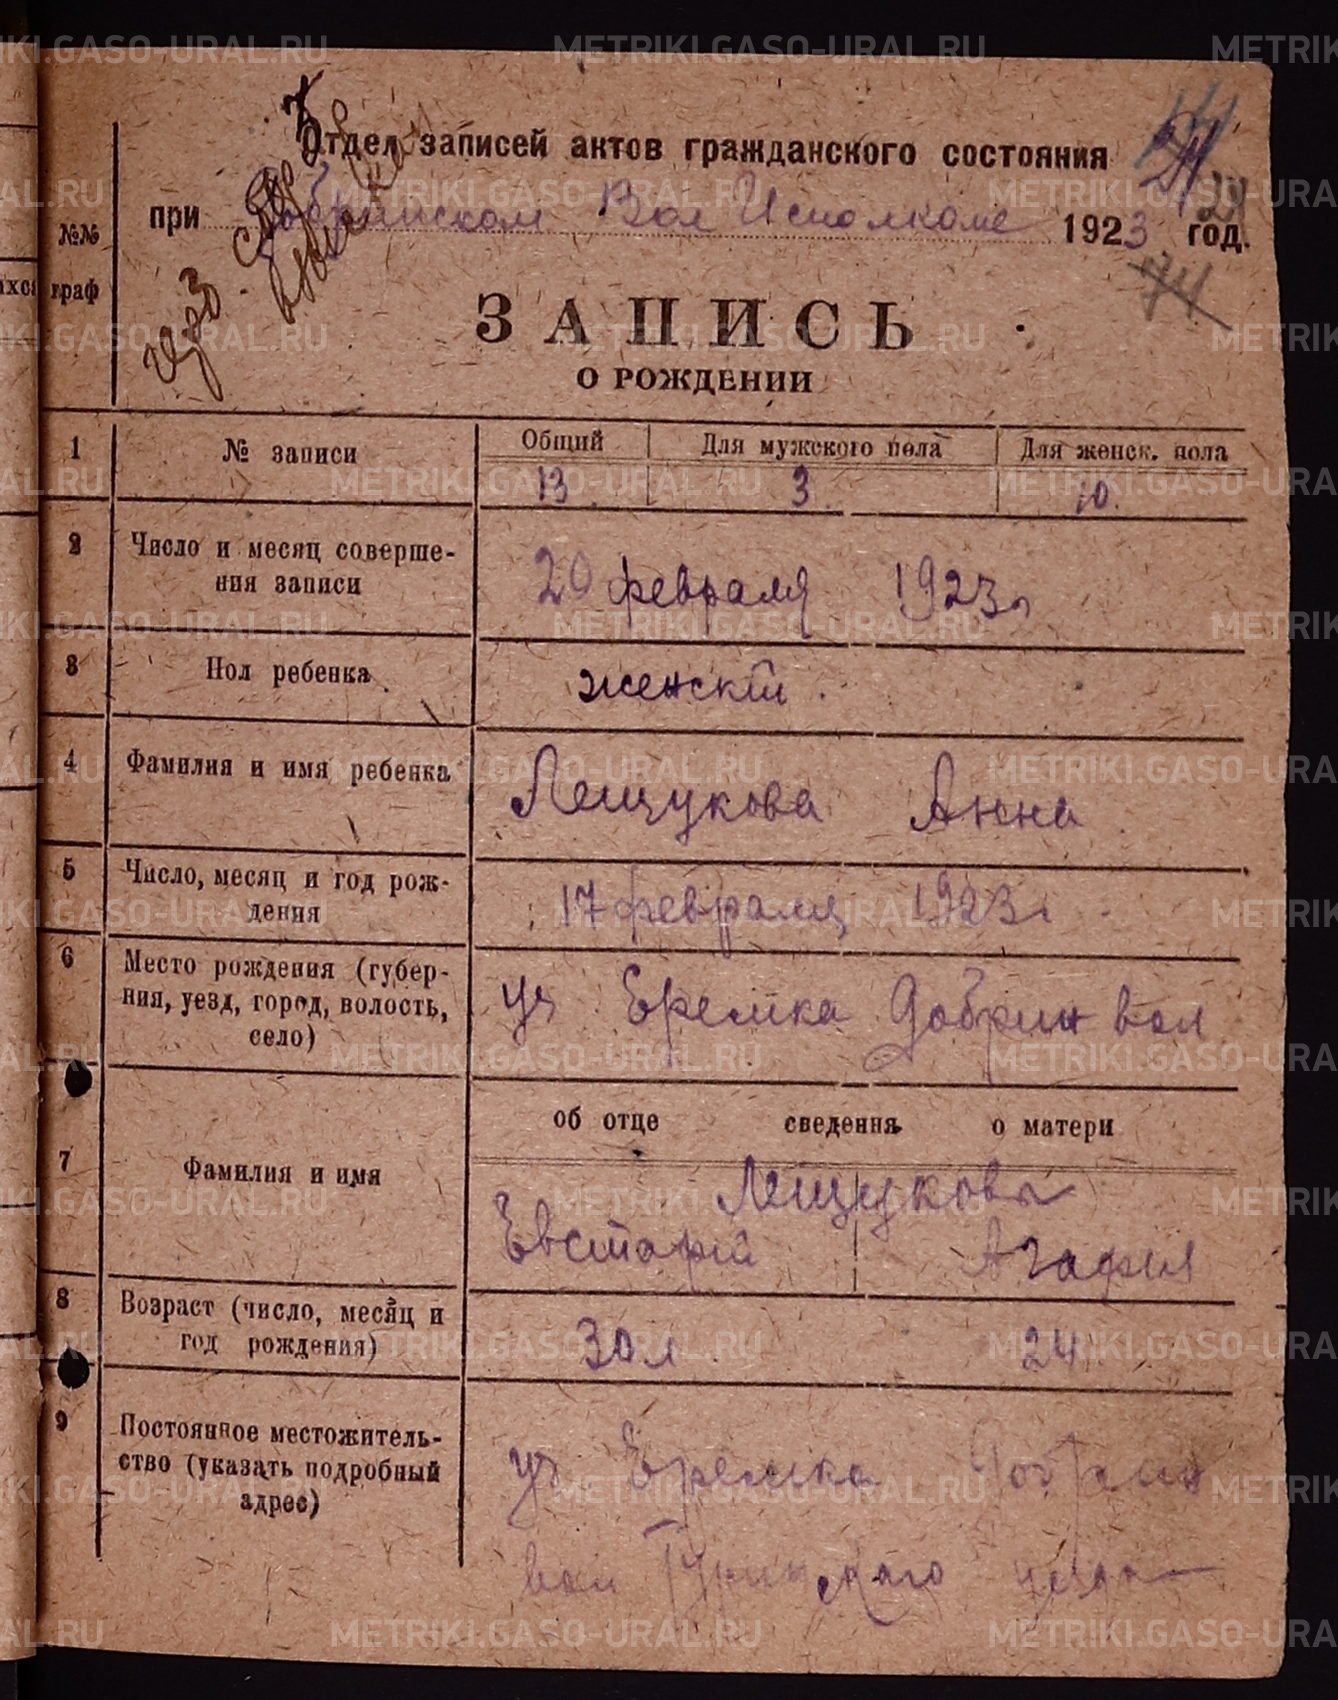 Отдел записей актов гражданского состояния
при Добринском Вол Исполкоме 1923 год.
24
№№ граф
74
ЗАПИСЬ
О РОЖДЕНИИ
1 № записи Общий Для мужского пола Для женск. пола
13. 3. 10.
2 Число и месяц соверше-
ния записи
20 февраля 1923г
3 Пол ребенка женскій.
4 Фамилия и имя ребенка Лещукова Анна
5 Число, месяц и год рож-
дения
17 февраля 1923г
6 Место рождения (губер-
ния, уезд, город, волость,
село)
уч Еремка Добрин вол
об отце сведения о матери
7 Фамилия и имя
Лещуковы
Евстафій Агафия
8 Возраст (число, месяц и
год рождения)
30 л. 24
9 Постоянное местожитель-
ство (указать подробный
адрес)
уч Еремка Добрин
вол Туринскаго уезда
METRIKI.GASO-URAL.RU